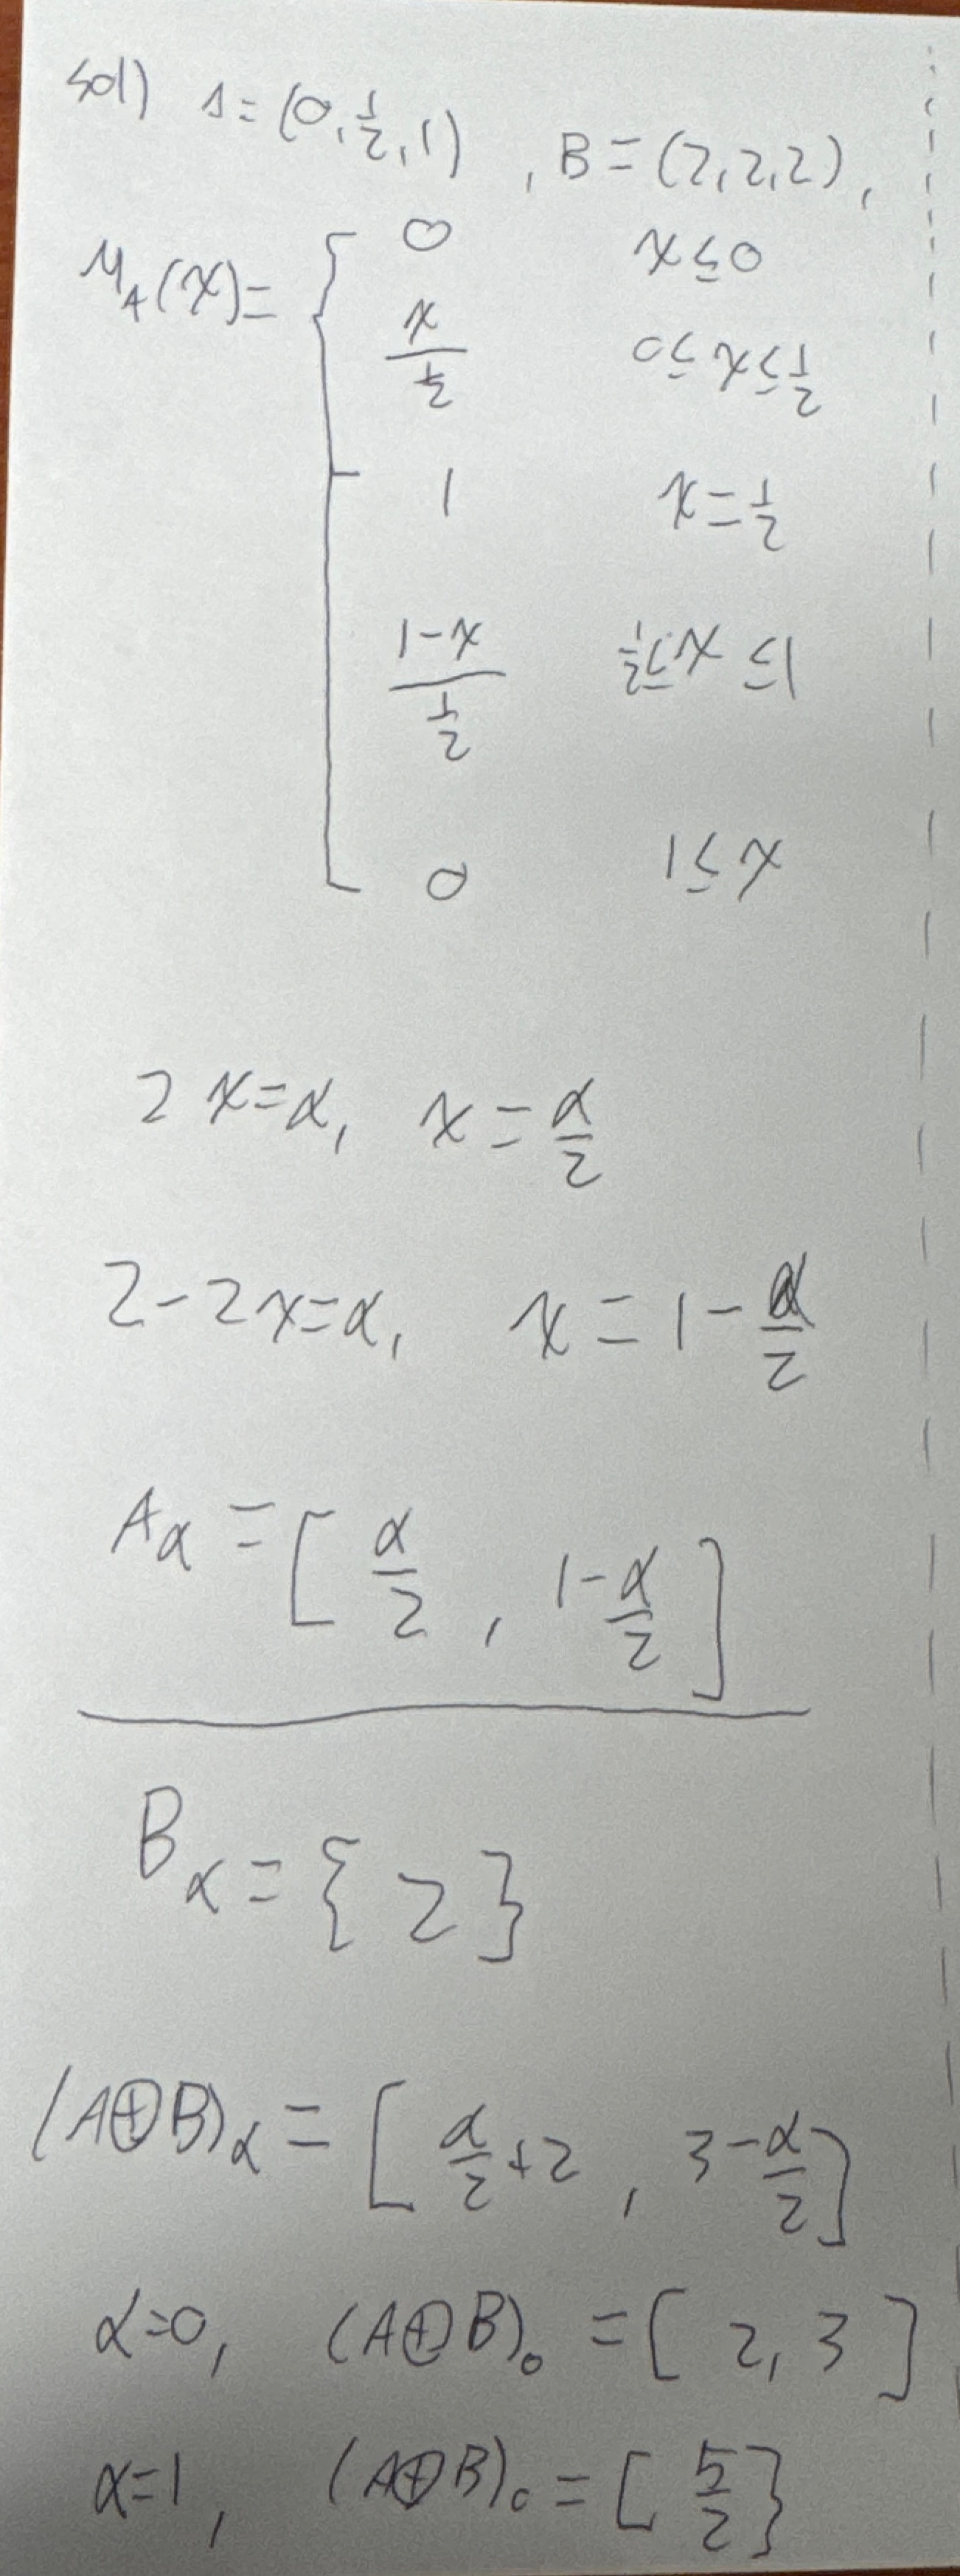 sol) A = (0, 1/2, 1), B = (2, 2, 2),
μ_A(x) = { 0 x ≤ 0
x / (1/2) 0 ≤ x ≤ 1/2
1 x = 1/2
(1-x) / (1/2) 1/2 ≤ x ≤ 1
0 1 ≤ x
2x = α, x = α/2
2 - 2x = α, x = 1 - α/2
A_α = [α/2, 1 - α/2]
B_α = {2}
(A⊕B)_α = [α/2 + 2, 3 - α/2]
α=0, (A⊕B)_0 = [2, 3]
α=1, (A⊕B)_0 = [5/2}